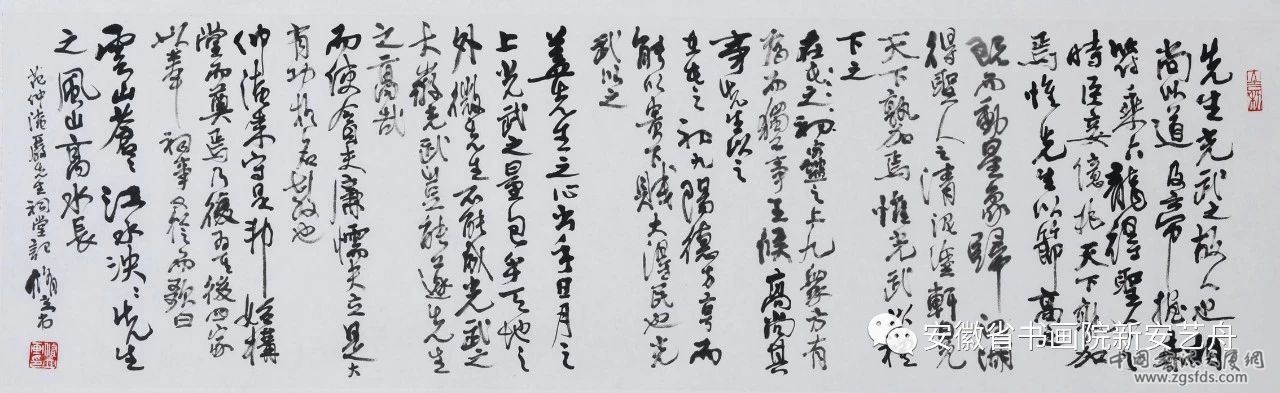 先生光武之故人也相
尚以道及帝握赤
符乘六龍得聖人之
時臣妾億兆天下孰加
焉惟先生以節高之
既而動星象歸江湖
得聖人之清泥塗軒冕
天下孰加焉惟光武以禮
下之
在屯之初蠱之上九眾方有
為而獨不事王侯高尚其
事先生以之
在屯之初九陽德方亨而
能以貴下賤大得民也光
武以之
蓋先生之心出乎日月之
上光武之量包乎天地之
外微先生不能成光武之
大微光武豈能遂先生
之高哉
而使貪夫廉懦夫立是大
有功於名教也
仲淹來守是邦始構
堂而奠焉乃復為其後四家
以奉祠事又從而歌曰
雲山蒼々江水泱々先生
之風山高水長
范仲淹嚴先生祠堂記
安徽省书画院新安艺舟
www.zgsfds.com